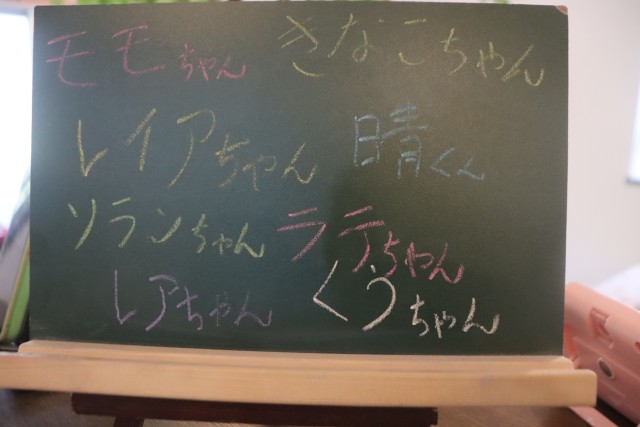 モモちゃん きなこちゃん
レイアちゃん 晴くん
ソランちゃん ラテちゃん
レアちゃん くうちゃん